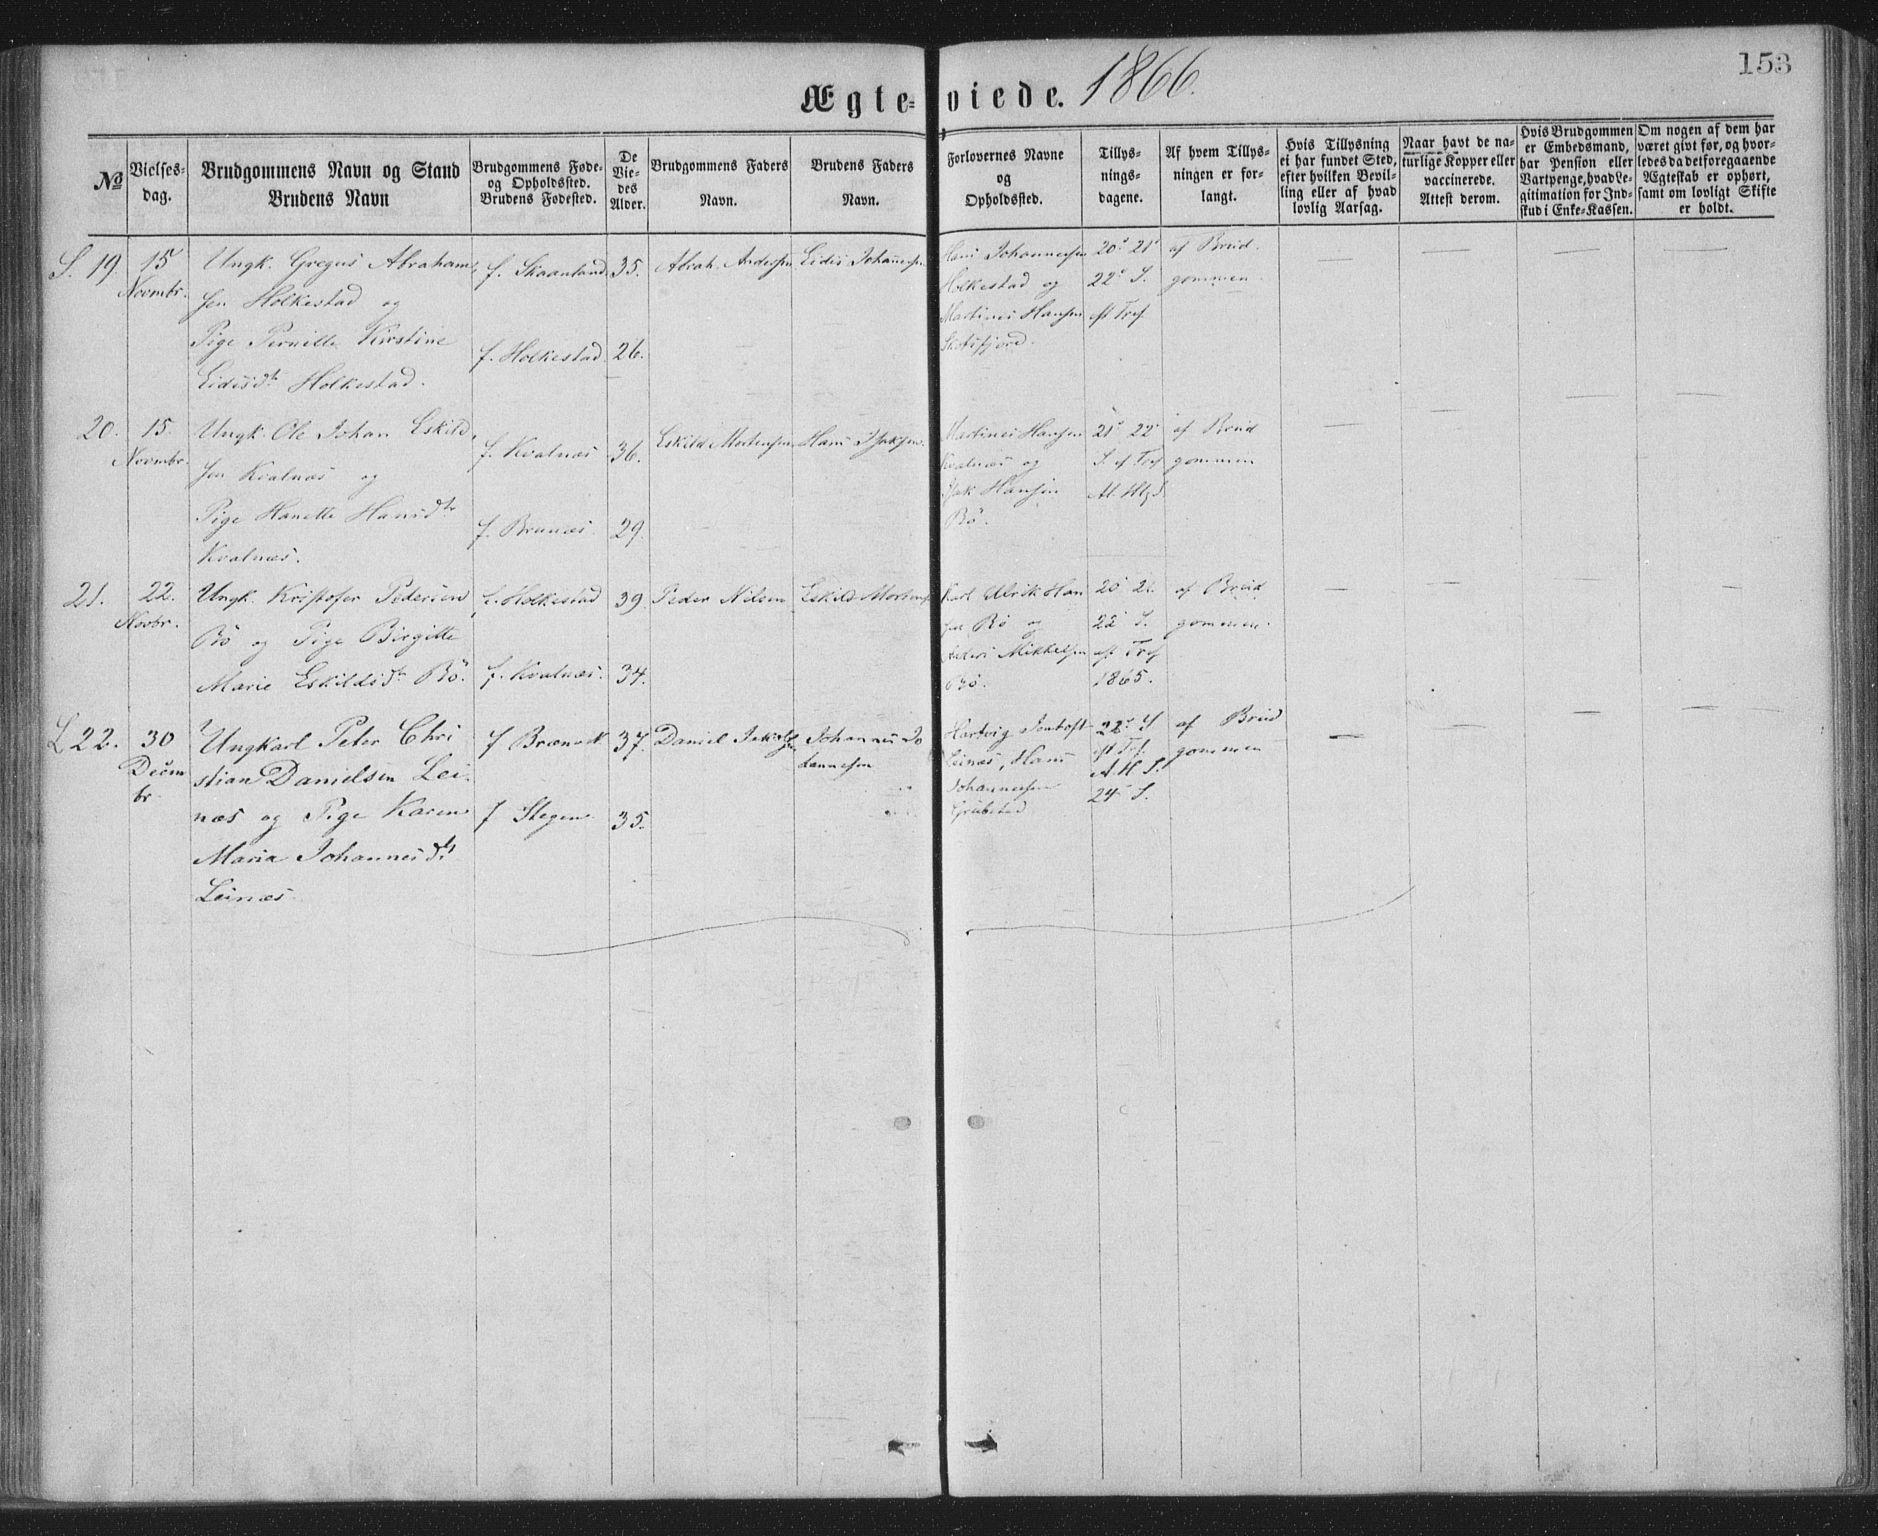 153
Ægteviede. 1866.
№
Vielses-
dag.
Brudgommens Navn og Stand
Brudens Navn
Brudgommens Føde-
og Opholdssted.
Brudens Fødested.
De
Vie-
des
Alder.
Brudgommens Faders
Navn.
Brudens Faders
Navn.
Forlovernes Navne
og
Opholdssted.
Tillys-
nings-
dagene.
Af hvem Tillys-
ningen er for-
langt.
Hvis Tillysning
ei har fundet Sted,
efter hvilken Bevil-
ling eller af hvad
lovlig Aarsag.
Naar havt de na-
turlige Kopper eller
vaccinerede.
Attest derom.
Hvis Brudgommen
er Embedsmand,
har Pension eller
Vartpenge, hvad Le-
gitimation for Ind-
skud i Enke-Kassen.
Om nogen af dem har
været givt før, og hvor-
ledes da det foregaaende
Ægteskab er ophørt,
samt om lovligt Skifte
er holdt.
S. 19
15
Novmbr.
Ungk. Gregus Abraham
sen Holkestad og
Pige Pernille Kirstine
Eidisdtr Holkestad.
f. Skaanland
f. Holkestad
35.
26.
Abrah. Andersen
Eidis Johannesen
Hans Johannesen
Holkestad og
Martines Hansen
20' 21'
22' S.
eft Tref
af Brud
gommen
20.
15.
Novmbr.
Ungk. Ole Johan Eskild
sen Kvalnæs og
Pige Hanette Hansdtr
Kvalnæs.
f. Kvalnæs
f. Brunæs
36.
29.
Eskild Mortensen
Hans Isaksen
Martines Hansen
Kvalnæs og
Isak Hansen
Bö.
21' 22'
S. ef Tref
Al. Hlgd.
af Brud
gommen
21.
22.
Novbr.
Ungk. Kristofer Pedersen
Bö og Pige Birgitte
Marie Eskildsdtr Bö.
f. Holkestad
f. Kvalnæs.
39
34.
Peder Nilsen
Eskild Mortensen
Karl Ulrik Han
sen Bö og
Anders Mikkelsen
Bö.
20 21.
22' S.
eft Tref
1865.
af Brud
gommen.
L 22.
30
Decm
br.
Ungkarl Peter Chri
stian Danielsen Lei
næs og Pige Karen
Maria Johannesdtr
Leinæs
f
f Stegen
37.
35.
Daniel
Johannes Jo
hannesen
Hartvig Jentoft
Leinæs, Hans
Johannesen
Grübsted
22' S
eft Tref.
A H S.
24' S.
af Brud
gommen